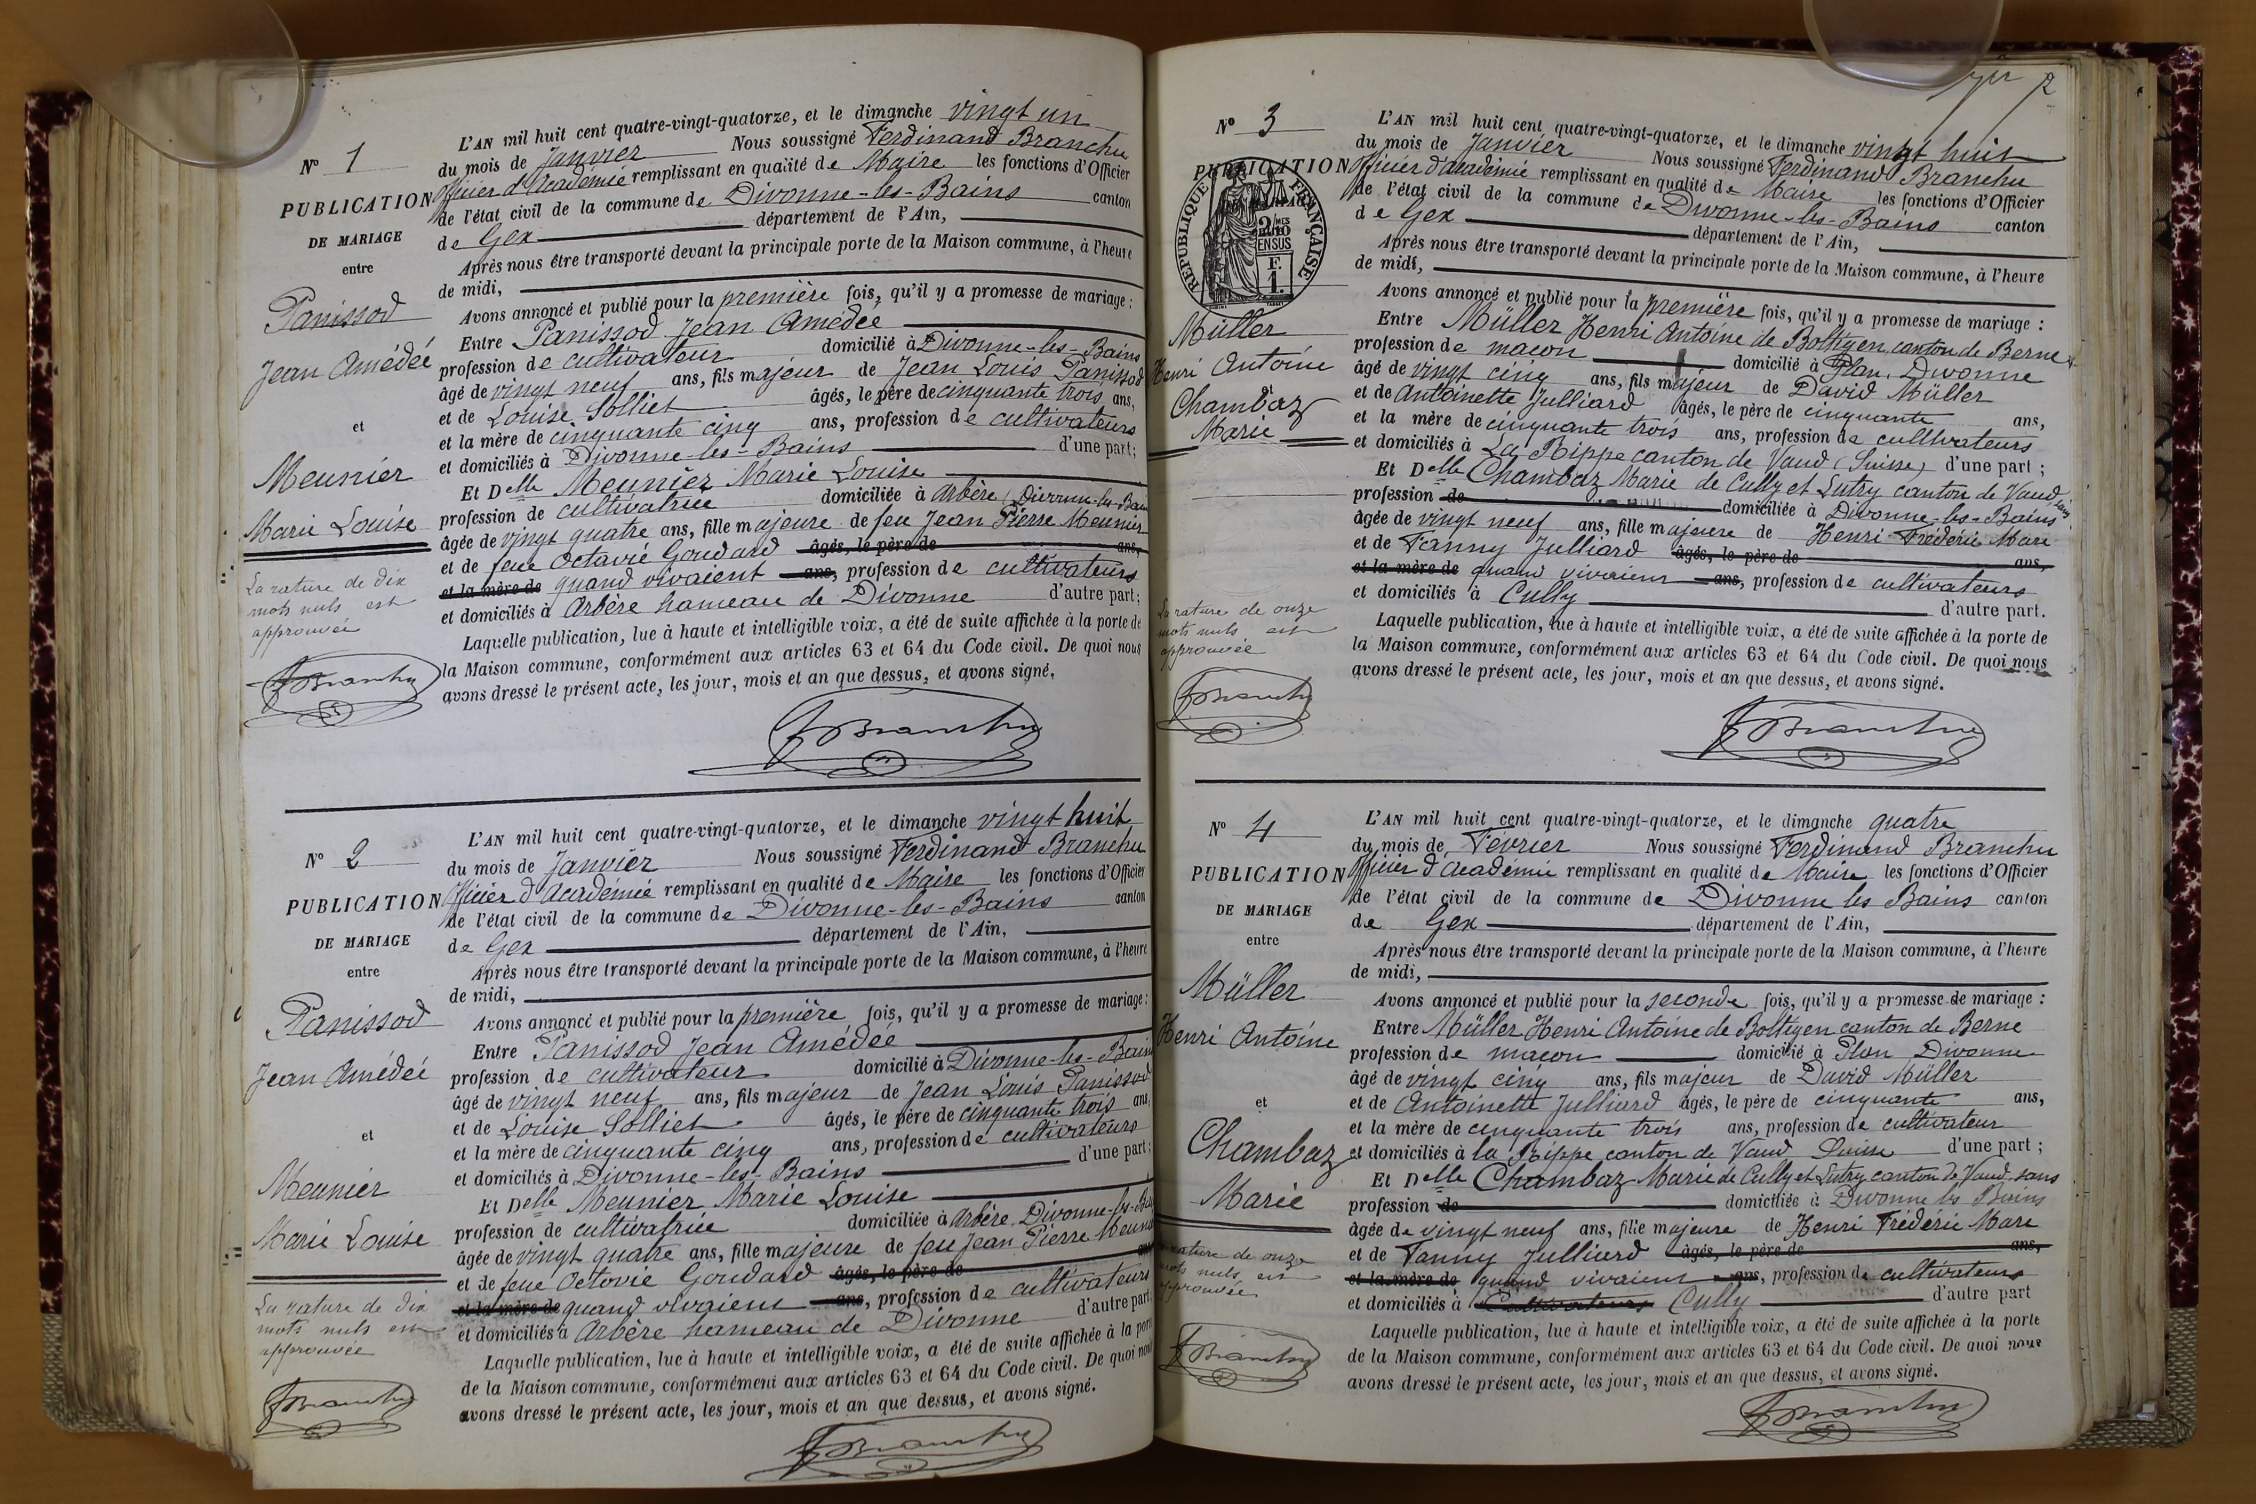 N° 1
PUBLICATION
DE MARIAGE
entre
Panissod
Jean Amédée
et
Meunier
Marie Louise
La rature de dix
mots nuls est
approuvée
FBranchu
L'AN mil huit cent quatre-vingt-quatorze, et le dimanche vingt un
du mois de Janvier Nous soussigné Ferdinand Branchu
Officier d'Académie remplissant en qualité de Maire les fonctions d'Officier
de l'état civil de la commune de Divonne-les-Bains canton
de Gex département de l'Ain,
Après nous être transporté devant la principale porte de la Maison commune, à l'heure
de midi,
Avons annoncé et publié pour la première fois, qu'il y a promesse de mariage :
Entre Panissod Jean Amédée
profession de cultivateur domicilié à Divonne-les-Bains
âgé de vingt neuf ans, fils majeur de Jean Louis Panissod
et de Louise Solliet âgés, le père de cinquante trois ans,
et la mère de cinquante cinq ans, profession de cultivateurs
et domiciliés à Divonne-les-Bains d'une part;
Et Delle Meunier Marie Louise
profession de cultivatrice domiciliée à Arbère (Divonne-les-Bains
âgée de vingt quatre ans, fille majeure de feu Jean Pierre Meunier
et de feue Octavie Goudard âgés, le père de ans,
et la mère de quand vivaient ans, profession de cultivateurs
et domiciliés à Arbère hameau de Divonne d'autre part;
Laquelle publication, lue à haute et intelligible voix, a été de suite affichée à la porte de
la Maison commune, conformément aux articles 63 et 64 du Code civil. De quoi nous
avons dressé le présent acte, les jour, mois et an que dessus, et avons signé.
FBranchu
N° 2
PUBLICATION
DE MARIAGE
entre
Panissod
Jean Amédée
et
Meunier
Marie Louise
La rature de dix
mots nuls est
approuvée
FBranchu
L'AN mil huit cent quatre-vingt-quatorze, et le dimanche vingt huit
du mois de Janvier Nous soussigné Ferdinand Branchu
Officier d'Académie remplissant en qualité de Maire les fonctions d'Officier
de l'état civil de la commune de Divonne-les-Bains canton
de Gex département de l'Ain,
Après nous être transporté devant la principale porte de la Maison commune, à l'heure
de midi,
Avons annoncé et publié pour la première fois, qu'il y a promesse de mariage :
Entre Panissod Jean Amédée
profession de cultivateur domicilié à Divonne-les-Bains
âgé de vingt neuf ans, fils majeur de Jean Louis Panissod
et de Louise Solliet âgés, le père de cinquante trois ans,
et la mère de cinquante cinq ans, profession de cultivateurs
et domiciliés à Divonne-les-Bains d'une part;
Et Delle Meunier Marie Louise
profession de cultivatrice domiciliée à Arbère Divonne-les-Bains
âgée de vingt quatre ans, fille majeure de feu Jean Pierre Meunier
et de feue Octovie Goudard âgés, le père de ans
et la mère de quand vivaient ans, profession de cultivateurs
et domiciliés à Arbère hameau de Divonne d'autre part,
Laquelle publication, lue à haute et intelligible voix, a été de suite affichée à la porte
de la Maison commune, conformément aux articles 63 et 64 du Code civil. De quoi nous
avons dressé le présent acte, les jour, mois et an que dessus, et avons signé.
FBranchu
2
N° 3
PUBLICATION
RÉPUBLIQUE FRANÇAISE
EN SUS
F.
1.
Müller
Henri Antoine
et
Chambaz
Marie
La rature de onze
mots nuls est
approuvée
FBranchu
L'AN mil huit cent quatre-vingt-quatorze, et le dimanche vingt huit
du mois de Janvier Nous soussigné Ferdinand Branchu
Officier d'académie remplissant en qualité de Maire les fonctions d'Officier
de l'état civil de la commune de Divonne-les-Bains canton
de Gex département de l'Ain,
Après nous être transporté devant la principale porte de la Maison commune, à l'heure
de midi,
Avons annoncé et publié pour la première fois, qu'il y a promesse de mariage :
Entre Müller Henri Antoine de Boltigen canton de Berne
profession de maçon domicilié à Plan, Divonne
âgé de vingt cinq ans, fils majeur de David Müller
et de Antoinette Julliard âgés, le père de cinquante ans,
et la mère de cinquante trois ans, profession de cultivateurs
et domiciliés à La Rippe canton de Vaud (Suisse) d'une part ;
Et Delle Chambaz Marie de Cully et Lutry canton de Vaud sans
profession de domiciliée à Divonne-les-Bains
âgée de vingt neuf ans, fille majeure de Henri Frédéric Marc
et de Fanny Julliard âgés, le père de ans,
et la mère de quand vivaient ans, profession de cultivateurs
et domiciliés à Cully d'autre part.
Laquelle publication, lue à haute et intelligible voix, a été de suite affichée à la porte de
la Maison commune, conformément aux articles 63 et 64 du Code civil. De quoi nous
avons dressé le présent acte, les jour, mois et an que dessus, et avons signé.
FBranchu
N° 4
PUBLICATION
DE MARIAGE
entre
Müller
Henri Antoine
et
Chambaz
Marie
La rature de onze
mots nuls est
approuvée
FBranchu
L'AN mil huit cent quatre-vingt-quatorze, et le dimanche quatre
du mois de Février Nous soussigné Ferdinand Branchu
Officier d'académie remplissant en qualité de Maire les fonctions d'Officier
de l'état civil de la commune de Divonne les Bains canton
de Gex département de l'Ain,
Après nous être transporté devant la principale porte de la Maison commune, à l'heure
de midi,
Avons annoncé et publié pour la seconde fois, qu'il y a promesse de mariage :
Entre Müller Henri Antoine de Boltigen canton de Berne
profession de maçon domicilié à Plan Divonne
âgé de vingt cinq ans, fils majeur de David Müller
et de Antoinette Julliard âgés, le père de cinquante ans,
et la mère de cinquante trois ans, profession de cultivateur
et domiciliés à la Rippe canton de Vaud Suisse d'une part ;
Et Delle Chambaz Marie de Cully et Lutry canton de Vaud sans
profession de domiciliée à Divonne les Bains
âgée de vingt neuf ans, fille majeure de Henri Frédéric Marc
et de Fanny Julliard âgés, le père de ans,
et la mère de quand vivaient ans, profession de cultivateurs
et domiciliés à Cultivateurs Cully d'autre part
Laquelle publication, lue à haute et intelligible voix, a été de suite affichée à la porte
de la Maison commune, conformément aux articles 63 et 64 du Code civil. De quoi nous
avons dressé le présent acte, les jour, mois et an que dessus, et avons signé.
FBranchu